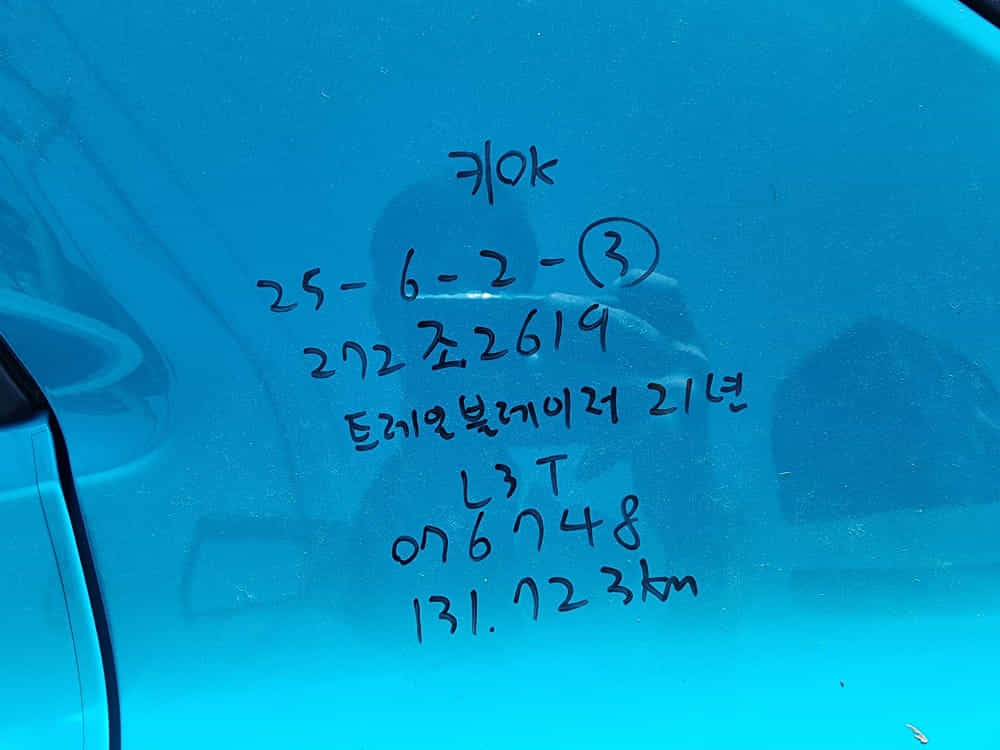 키OK
25-6-2-③
272조2619
트레일블레이저 21년
L3T
076748
131.723km